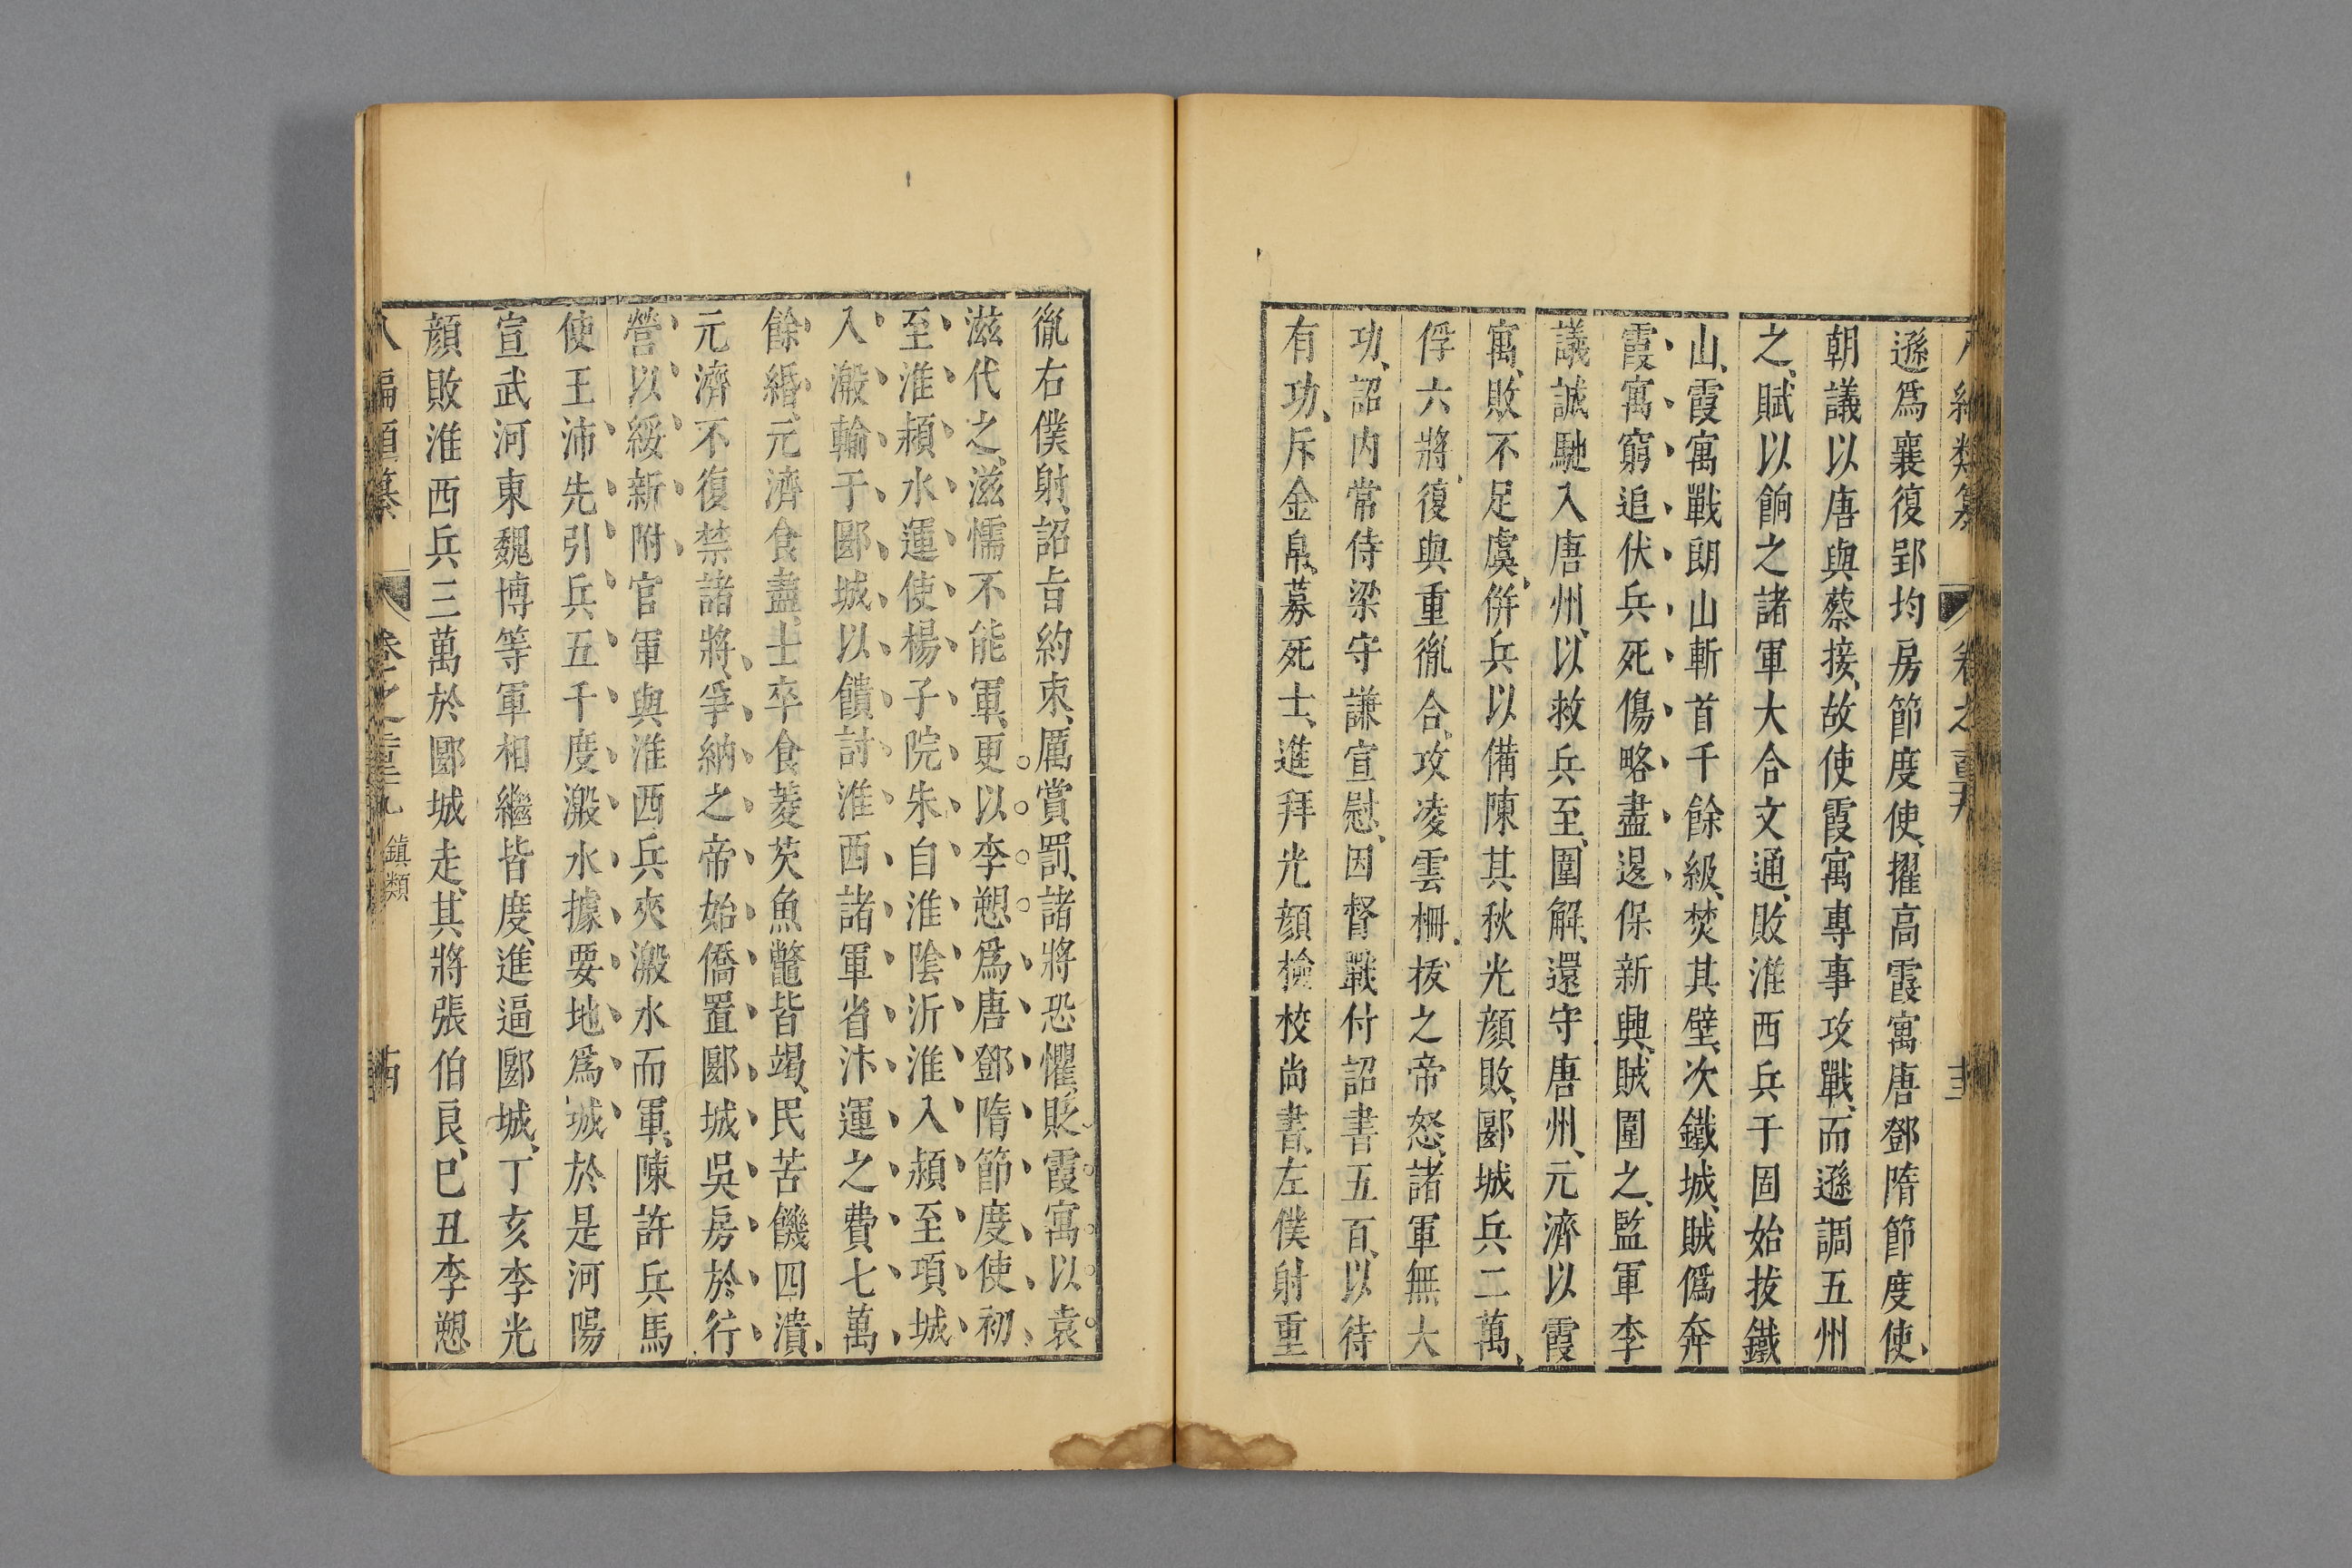 遜爲襄復郢均房節度使擢高霞寓唐鄧隋節度使
朝議以唐與蔡接故使霞寓專事攻戰而遜調五州
之賦以餉之諸軍大合文通敗淮西兵于固始拔鐵
山霞寓戰朗山斬首千餘級焚其壁次鐵城賊僞奔
霞寓窮追伏兵死傷略盡退保新興賊圍之監軍李
議誠馳入唐州以救兵至圍解還守唐州元濟以霞
寓敗不足虞併兵以備陳其秋光顔敗郾城兵二萬
俘六將復與重胤合攻凌雲柵拔之帝怒諸軍無大
功詔内常侍梁守謙宣慰因督戰付詔書五百以待
有功斥金帛募死士進拜光顔檢校尚書左僕射重
胤右僕射詔旨約束厲賞罰諸將恐懼貶霞寓以袁
滋代之滋懦不能軍更以李愬爲唐鄧隋節度使初
至淮潁水運使楊子院朱自淮陰泝淮入潁至項城
入溵輸于郾城以饋討淮西諸軍省汴運之費七萬
餘緡元濟食盡士卒食菱芡魚鼈皆竭民苦饑四潰
元濟不復禁諸將爭納之帝始僑置郾城吳房於行
營以綏新附官軍與淮西兵夾溵水而軍陳許兵馬
使王沛先引兵五千度溵水據要地爲城於是河陽
宣武河東魏博等軍相繼皆度進逼郾城丁亥李光
顔敗淮西兵三萬於郾城走其將張伯良巳丑李愬
八編類纂 卷之 鎮類